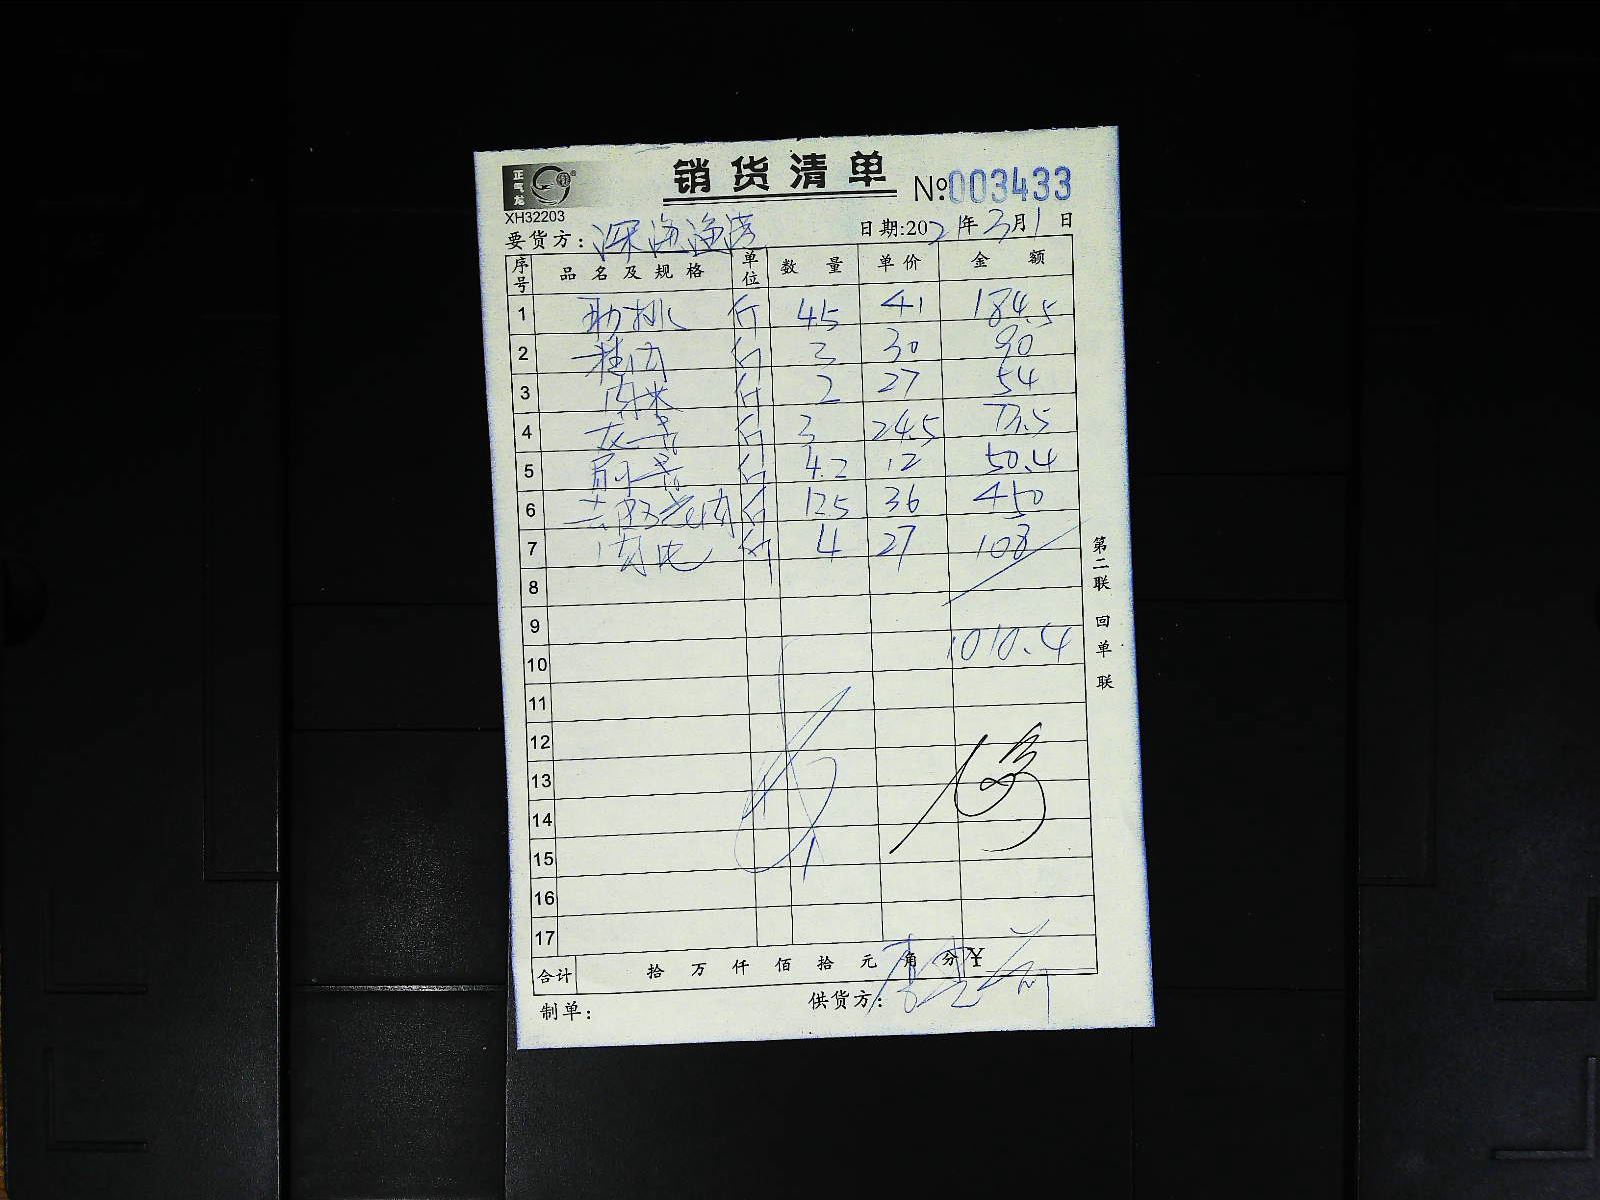 正气龙
销货清单
№003433
XH32203
要货方：深海渔湾 日期:2021年3月1日
序号 品名及规格 单位 数量 单价 金额
1 肋排 斤 45 41 184.5
2 斤 3 30 90
3 肉末 斤 2 27 54
4 龙骨 斤 3 24.5 73.5
5 扇骨 斤 4.2 12 50.4
6 去皮 肉 斤 125 36 450
7 斤 4 27 108
8
9
10 1010.4
11
12
13
14
15
16
17
合计 拾万仟佰拾元角分¥
制单： 供货方：
第二联 回单联